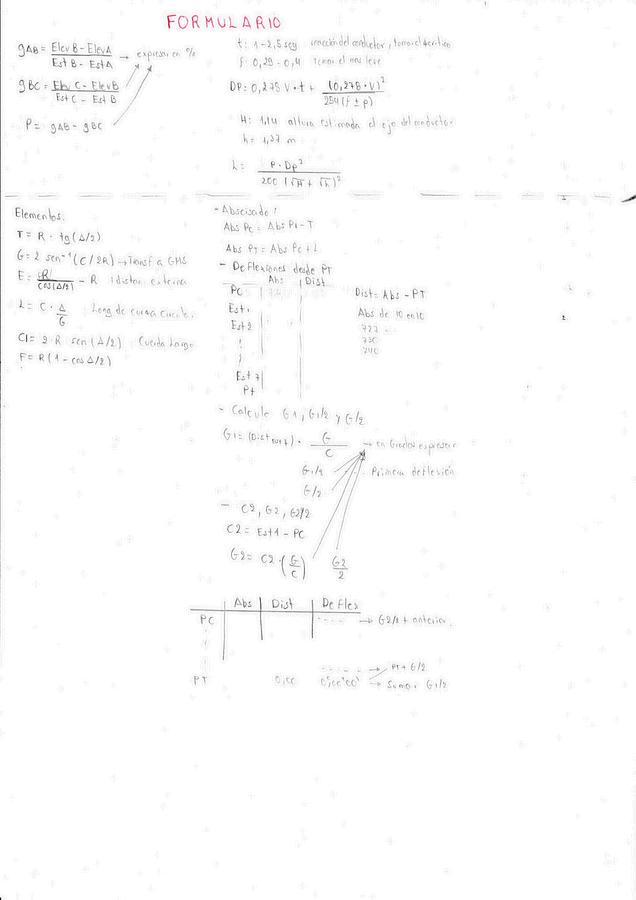 FORMULARIO
gAB = Elev B - Elev A / Est B - Est A → expresar en %
gBC = Elev C - Elev B / Est C - Est B
P = gAB - gBC
t: 1-2,5 seg reacción del conductor, tomar el
f: 0,29 - 0,4 tomar el
DP: 0,278 V·t + (0,278·V)² / 254 (f ± p)
H: 1,14 altura estimada el ojo del conductor
h: 1,37 m
L = P · Dp² / 200 (√H + √h)²
Elementos:
T = R · tg (Δ/2)
G = 2 sen⁻¹ (C / 2R) → Transf a GMS
E = R / cos(Δ/2) - R : distan externa
L = C · Δ / G : Long de curva circular.
Cl = 2·R sen (Δ/2) : Cuerda Larga
F = R (1 - cos Δ/2)
- Abscisado:
Abs Pc = Abs PI - T
Abs PT = Abs Pc + L
- Deflexiones desde PT
Abs | Dist
PC
Est 1
Est 2
Est 7
Pt
Dist = Abs - PT
Abs de 10 en 10
727
730
740
- Calculo G1, G1/2 y G/2
G1 = (Dist) · G / C → en Grados expresar
G1/2 Primera deflexión
G/2
- C2, G2, G2/2
C2 = Est 1 - PC
G2 = C2 · (G / C) G2 / 2
Abs | Dist | Deflex
PC ---- → G2/2 + anterior.
----- → PT + G/2
PT 0,00 0°00'00" → Sumar G1/2